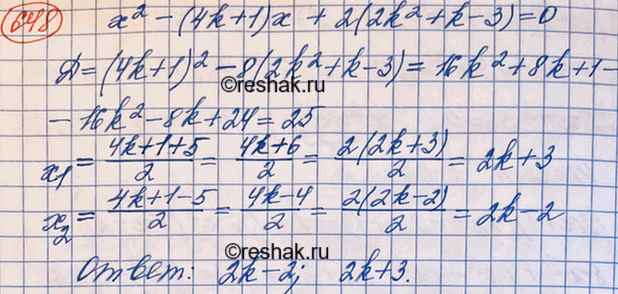 648 x² - (4k+1)x + 2(2k²+k-3)=0
Д = (4k+1)² - 8(2k²+k-3) = 16k²+8k+1-
©reshak.ru
- 16k² - 8k + 24 = 25
x₁ = \frac{4k+1+5}{2} = \frac{4k+6}{2} = \frac{2(2k+3)}{2} = 2k+3
x₂ = \frac{4k+1-5}{2} = \frac{4k-4}{2} = \frac{2(2k-2)}{2} = 2k-2
©reshak.ru
Ответ: 2k-2; 2k+3.